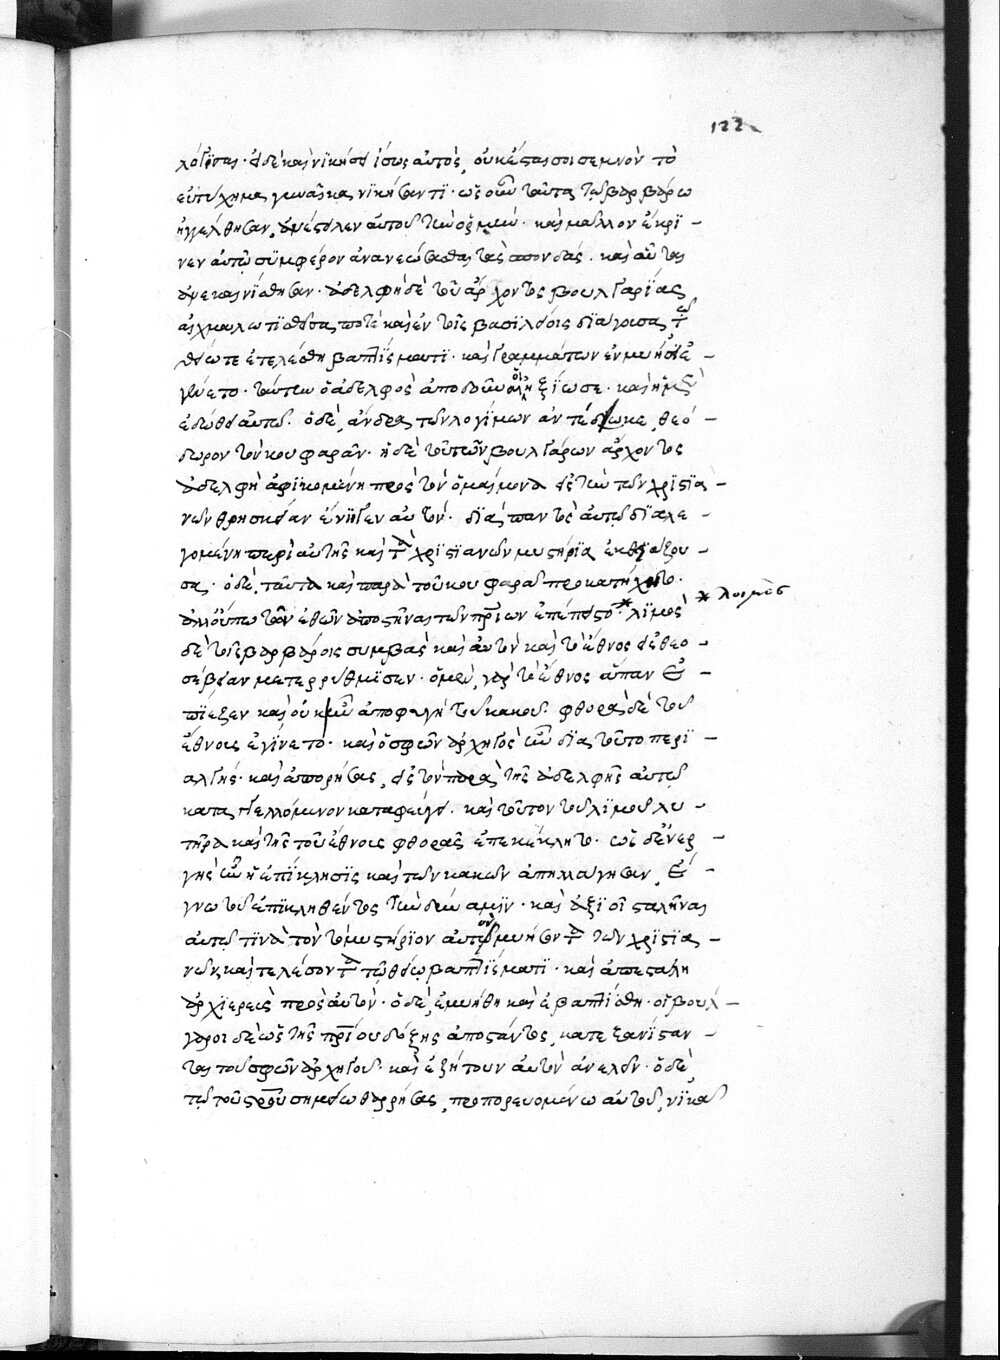 122
λόγησας· εἰ δὲ καὶ νικήσει ἴσως αὐτὸς, οὐκ ἔσται σοι σεμνὸν τὸ
εὐτύχημα, γυναῖκα νικήσαντι· ὡς οὖν ταῦτα τῷ βαρβάρῳ
ἠγγέλθησαν, ἀνέστειλεν αὐτοῦ τὴν ὁρμήν· καὶ μᾶλλον ἔκρι-
νεν αὐτῷ συμφέρον ἀνανεώσασθαι τὰς σπονδάς· καὶ αὗται
ἀνεκαινίσθησαν· ἀδελφὴ δὲ τοῦ ἄρχοντος βουλγαρίας
αἰχμαλωτισθεῖσα ποτὲ καὶ ἐν τοῖς βασιλείοις διάγουσα τῶ
θείω τε ἐτελέσθη βαπτίσματι· καὶ γραμμάτων ἐν μυήσει ἐ-
γένετο· ταύτην ὁ ἀδελφὸς ἀποδοθῆναι οἷ ἠξίωσε· καὶ ἡ μὲν
ἐδόθη αὐτῷ· ὁ δὲ, ἄνδρα τῶν λογίμων ἀντέδωκε, θεό-
δωρον τὸν κουφαρᾶν· ἡ δὲ τοῦ τῶν βουλγάρων ἄρχοντος
ἀδελφὴ ἀφικομένη πρὸς τὸν ὁμαίμονα εἰς τὴν τῶν χριστια-
νῶν θρησκείαν ἐνῆγεν αὐτόν· διὰ παντὸς αὐτῷ διαλε-
γομένη περὶ αὐτῆς καὶ τὰ χριστιανῶν μυστήρια ἐκθειάζου-
σα· ὁ δὲ, ταῦτα καὶ παρὰ τοῦ κουφαρᾶ προκατήχητο·
ἀλλ' οὔπω τῶν ἐθῶν ἀποστῆναι τῶν πρίων ἐπέπειστο· * λιμὸς
* λοιμὸς
δὲ τοῖς βαρβάροις συμβὰς καὶ αὐτὸν καὶ τὸ ἔθνος εἰς θεο-
σέβειαν μετερρύθμισεν· ὁ μὲν γὰρ τὸ ἔθνος ἅπαν ἐ-
πίεζεν καὶ οὐκ ἦν ἀποφυγὴ τοῦ κακοῦ· φθορὰ δὲ τοῦ
ἔθνους ἐγίνετο· καὶ ὁ σφῶν ἀρχηγὸς ἦν διὰ τοῦτο περι-
αλγής· καὶ ἀπορήσας, εἰς τὸν παρὰ τῆς ἀδελφῆς αὐτῷ
καταγγελλόμενον καταφεύγει· καὶ τοῦτον τοῦ λιμοῦ λυ-
τῆρα καὶ τῆς τοῦ ἔθνους φθορᾶς ἐπεκέκλητο· ὡς δ' ἐνερ-
γὴς ἦν ἡ ἐπίκλησις καὶ τῶν κακῶν ἀπηλλάγησαν, ἔ-
γνω τοῦ ἐπικληθέντος τὴν δύναμιν· καὶ ἀξιοῖ σταλῆναι
αὐτῷ τινὰ τὸν τὸ μυστήριον αὐτὸν μυήσοντα τῶν χριστια-
νῶν, καὶ τελέσοντα τῷ θείῳ βαπτίσματι· καὶ ἀπεστάλη
ἀρχιερεὺς πρὸς αὐτόν· ὁ δὲ, ἐμυήθη καὶ ἐβαπτίσθη· οἱ βούλ-
γαροι δὲ ὡς τῆς πρίου δόξης ἀποστάντος, κατεξανίσταν-
ται τοῦ σφῶν ἀρχηγοῦ· καὶ ἐξήτουν αὐτὸν ἀνελεῖν· ὁ δὲ,
τῷ τοῦ σροῦ σημείω θαρρήσας, προπορευομένω αὐτοῦ, νικᾶ